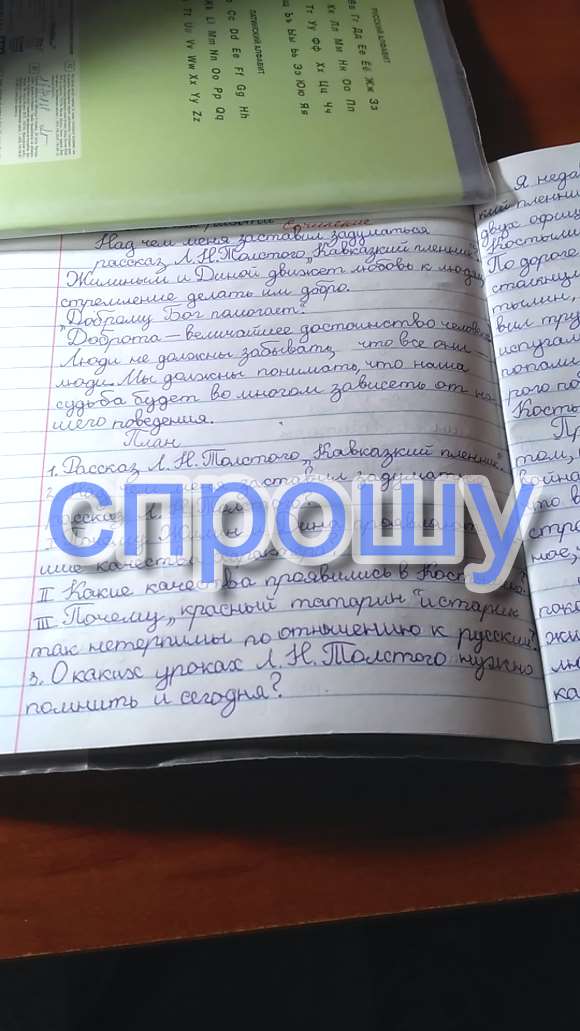 РУССКИЙ АЛФАВИТ
Вв Гг Дд Ее Ёё Жж Зз
Кк Лл Мм Нн Оо Пп
Тт Уу Фф Хх Цц Чч
Щщ Ъъ Ыы Ьь Ээ Юю Яя
ЛАТИНСКИЙ АЛФАВИТ
Cc Dd Ee Ff Gg Hh
Kk Ll Mm Nn Oo Pp Qq
Tt Uu Vv Ww Xx Yy Zz
работы Сочинение
Над чем меня заставил задуматься
рассказ Л.Н.Толстого „Кавказкий пленник"
Жилиным и Диной движет любовь к людям
стремление делать им добро.
„Доброму Бог помогает".
"Доброта – величайшее достоинство человека
Люди не должны забывать, что все они –
люди. Мы должны понимать, что наша
судьба будет во многом зависеть от на-
шего поведения.
План
1. Рассказ Л.Н.Толстого „Кавказкий пленник".
2. заставил задуматься
рассказ Л.Н.
Жилин и Дина проявляют
шие качества
II Какие качества проявились в
III. Почему „красный татарин" и старик
так нетерпимы по отношению к русским?
3. О каких уроках Л.Н.Толстого нужно
помнить и сегодня?
спрошу
Я неда
кий пленни
двух офиц
Костыли
По дороге
столкнул
тылин,
вил тру
испугал
попали
рого по
Кость
Пр
том,
война
что в
стре
ное,
пока
жи
лю
ка